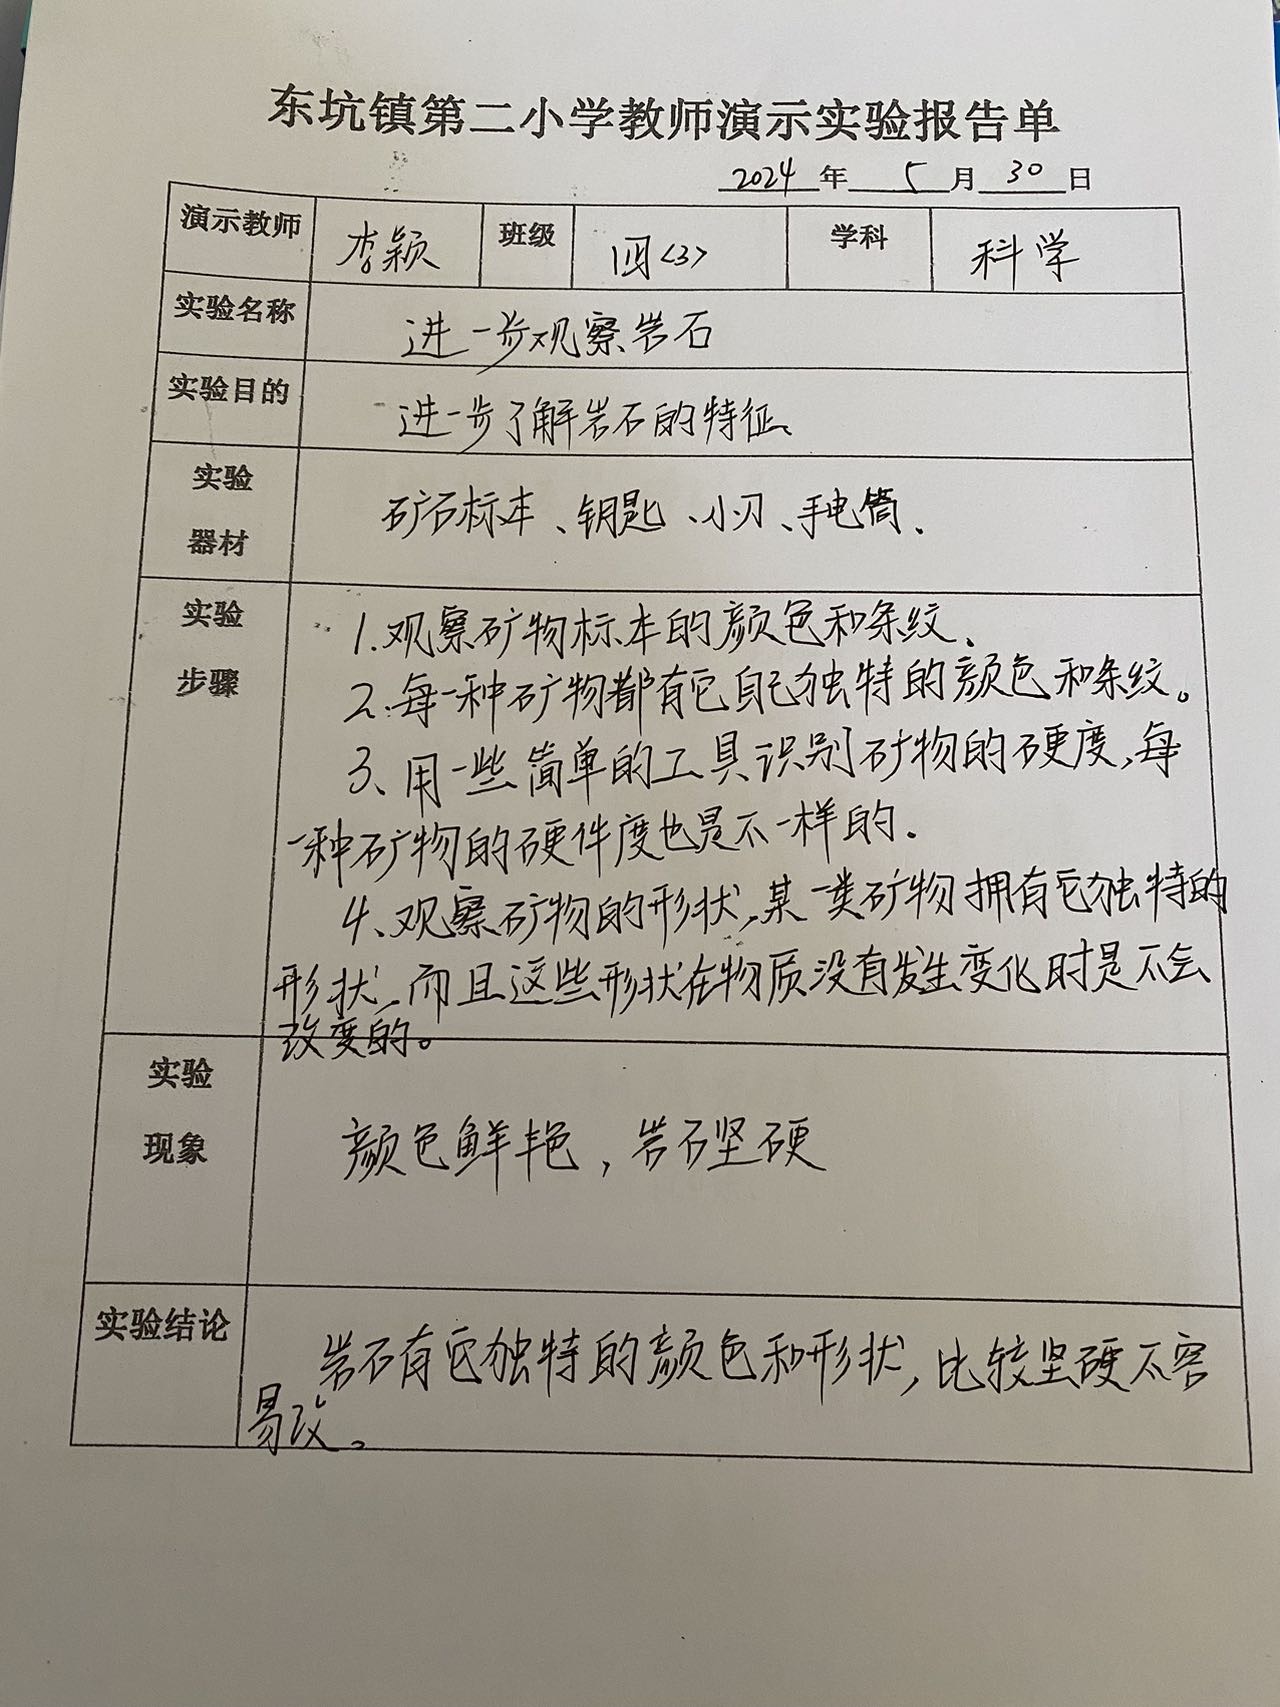 东坑镇第二小学教师演示实验报告单
2024年5月30日
演示教师 李颖 班级 四<3> 学科 科学
实验名称 进一步观察岩石
实验目的 进一步了解岩石的特征。
实验器材 矿石标本、钥匙、小刀、手电筒.
实验步骤 1.观察矿物标本的颜色和条纹.
2.每一种矿物都有它自己独特的颜色和条纹。
3、用一些简单的工具识别矿物的硬度,每
一种矿物的硬件度也是不一样的.
4、观察矿物的形状,某一类矿物拥有它独特的
形状,而且这些形状在物质没有发生变化时是不会
改变的。
实验现象 颜色鲜艳,岩石坚硬
实验结论 岩石有它独特的颜色和形状,比较坚硬不容
易改。